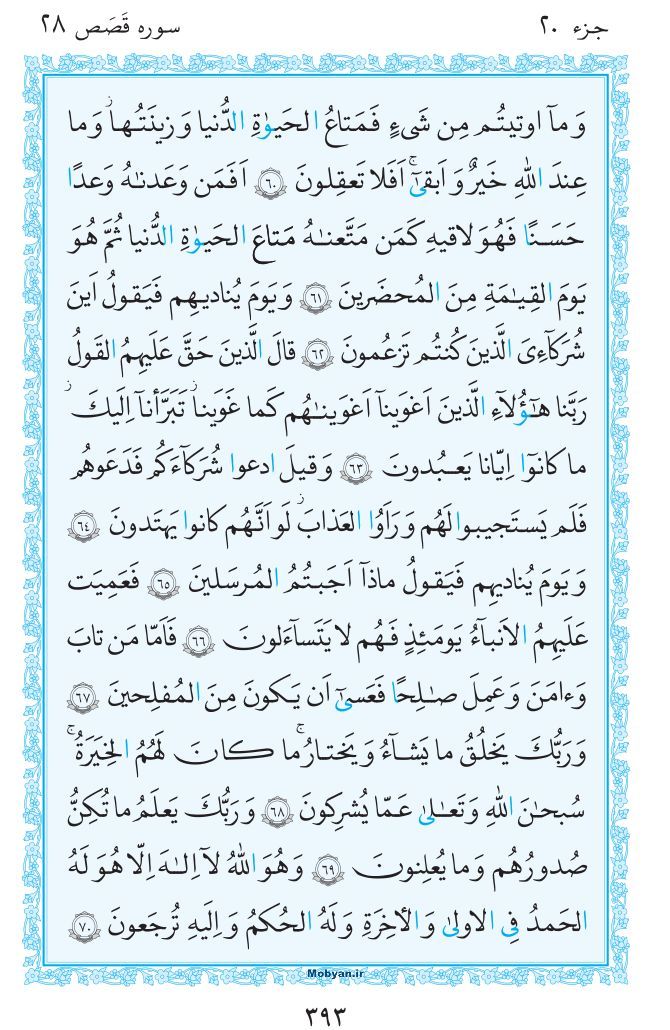 جزء ۲۰
سوره قَصَص ۲۸
وَ مآ اوتيتُم مِن شَیءٍ فَمَتاعُ الحَيوٰةِ الدُّنيا وَ زينَتُهاۚ وَ ما
عِندَ اللهِ خَيرٌ وَ اَبقیٰٓۚ اَفَلا تَعقِلونَ ﴿۶۰﴾ اَفَمَن وَعَدنـٰهُ وَعدًا
حَسَـنًا فَهُوَ لاقيهِ كَمَن مَتَّعنـٰهُ مَتاعَ الحَيوٰةِ الدُّنيا ثُمَّ هُوَ
يَومَ القِيـٰمَةِ مِنَ المُحضَرينَ ﴿۶۱﴾ وَ يَومَ يُناديهِم فَيَقولُ اَينَ
شُرَكآءِیَ الَّذينَ كُنتُم تَزعُمونَ ﴿۶۲﴾ قالَ الَّذينَ حَقَّ عَلَيهِمُ القَولُ
رَبَّنا هـٰٓؤُلآءِ الَّذينَ اَغوَينآ اَغوَينـٰهُم كَما غَوَيناۖ تَبَرَّأنآ اِلَيكَۖ
ما كانوٓا اِيّانا يَعـبُدونَ ﴿۶۳﴾ وَ قيلَ ادعوا شُرَكآءَكُم فَدَعَوهُم
فَلَم يَستَجيبوا لَهُم وَ رَاَوُا العَذابَۚ لَو اَنَّهُم كانوا يَهتَدونَ ﴿۶۴﴾
وَ يَومَ يُناديهِم فَيَقولُ ماذآ اَجَبتُمُ المُرسَلينَ ﴿۶۵﴾ فَعَمِيَت
عَلَيهِمُ الاَنبآءُ يَومَئِذٍ فَهُم لا يَتَسآءَلونَ ﴿۶۶﴾ فَاَمّا مَن تابَ
وَ ءامَنَ وَ عَمِلَ صـٰلِحًا فَعَسیٰٓ اَن يَكونَ مِنَ المُفلِحينَ ﴿۶۷﴾
وَ رَبُّكَ يَخلُقُ ما يَشآءُ وَ يَختارُۗ ما كانَ لَهُمُ الخِيَرَةُۚ
سُبحـٰنَ اللهِ وَ تَعـٰلیٰ عَمّا يُشرِكونَ ﴿۶۸﴾ وَ رَبُّكَ يَعلَمُ ما تُكِنُّ
صُدورُهُم وَ ما يُعلِنونَ ﴿۶۹﴾ وَ هُوَ اللهُ لآ اِلـٰهَ اِلّا هُوَ لَهُ
الحَمدُ فِی الاولیٰ وَ الأخِرَةِ وَ لَهُ الحُكمُ وَ اِلَيهِ تُرجَعونَ ﴿۷۰﴾
Mobyan.ir
۳۹۳